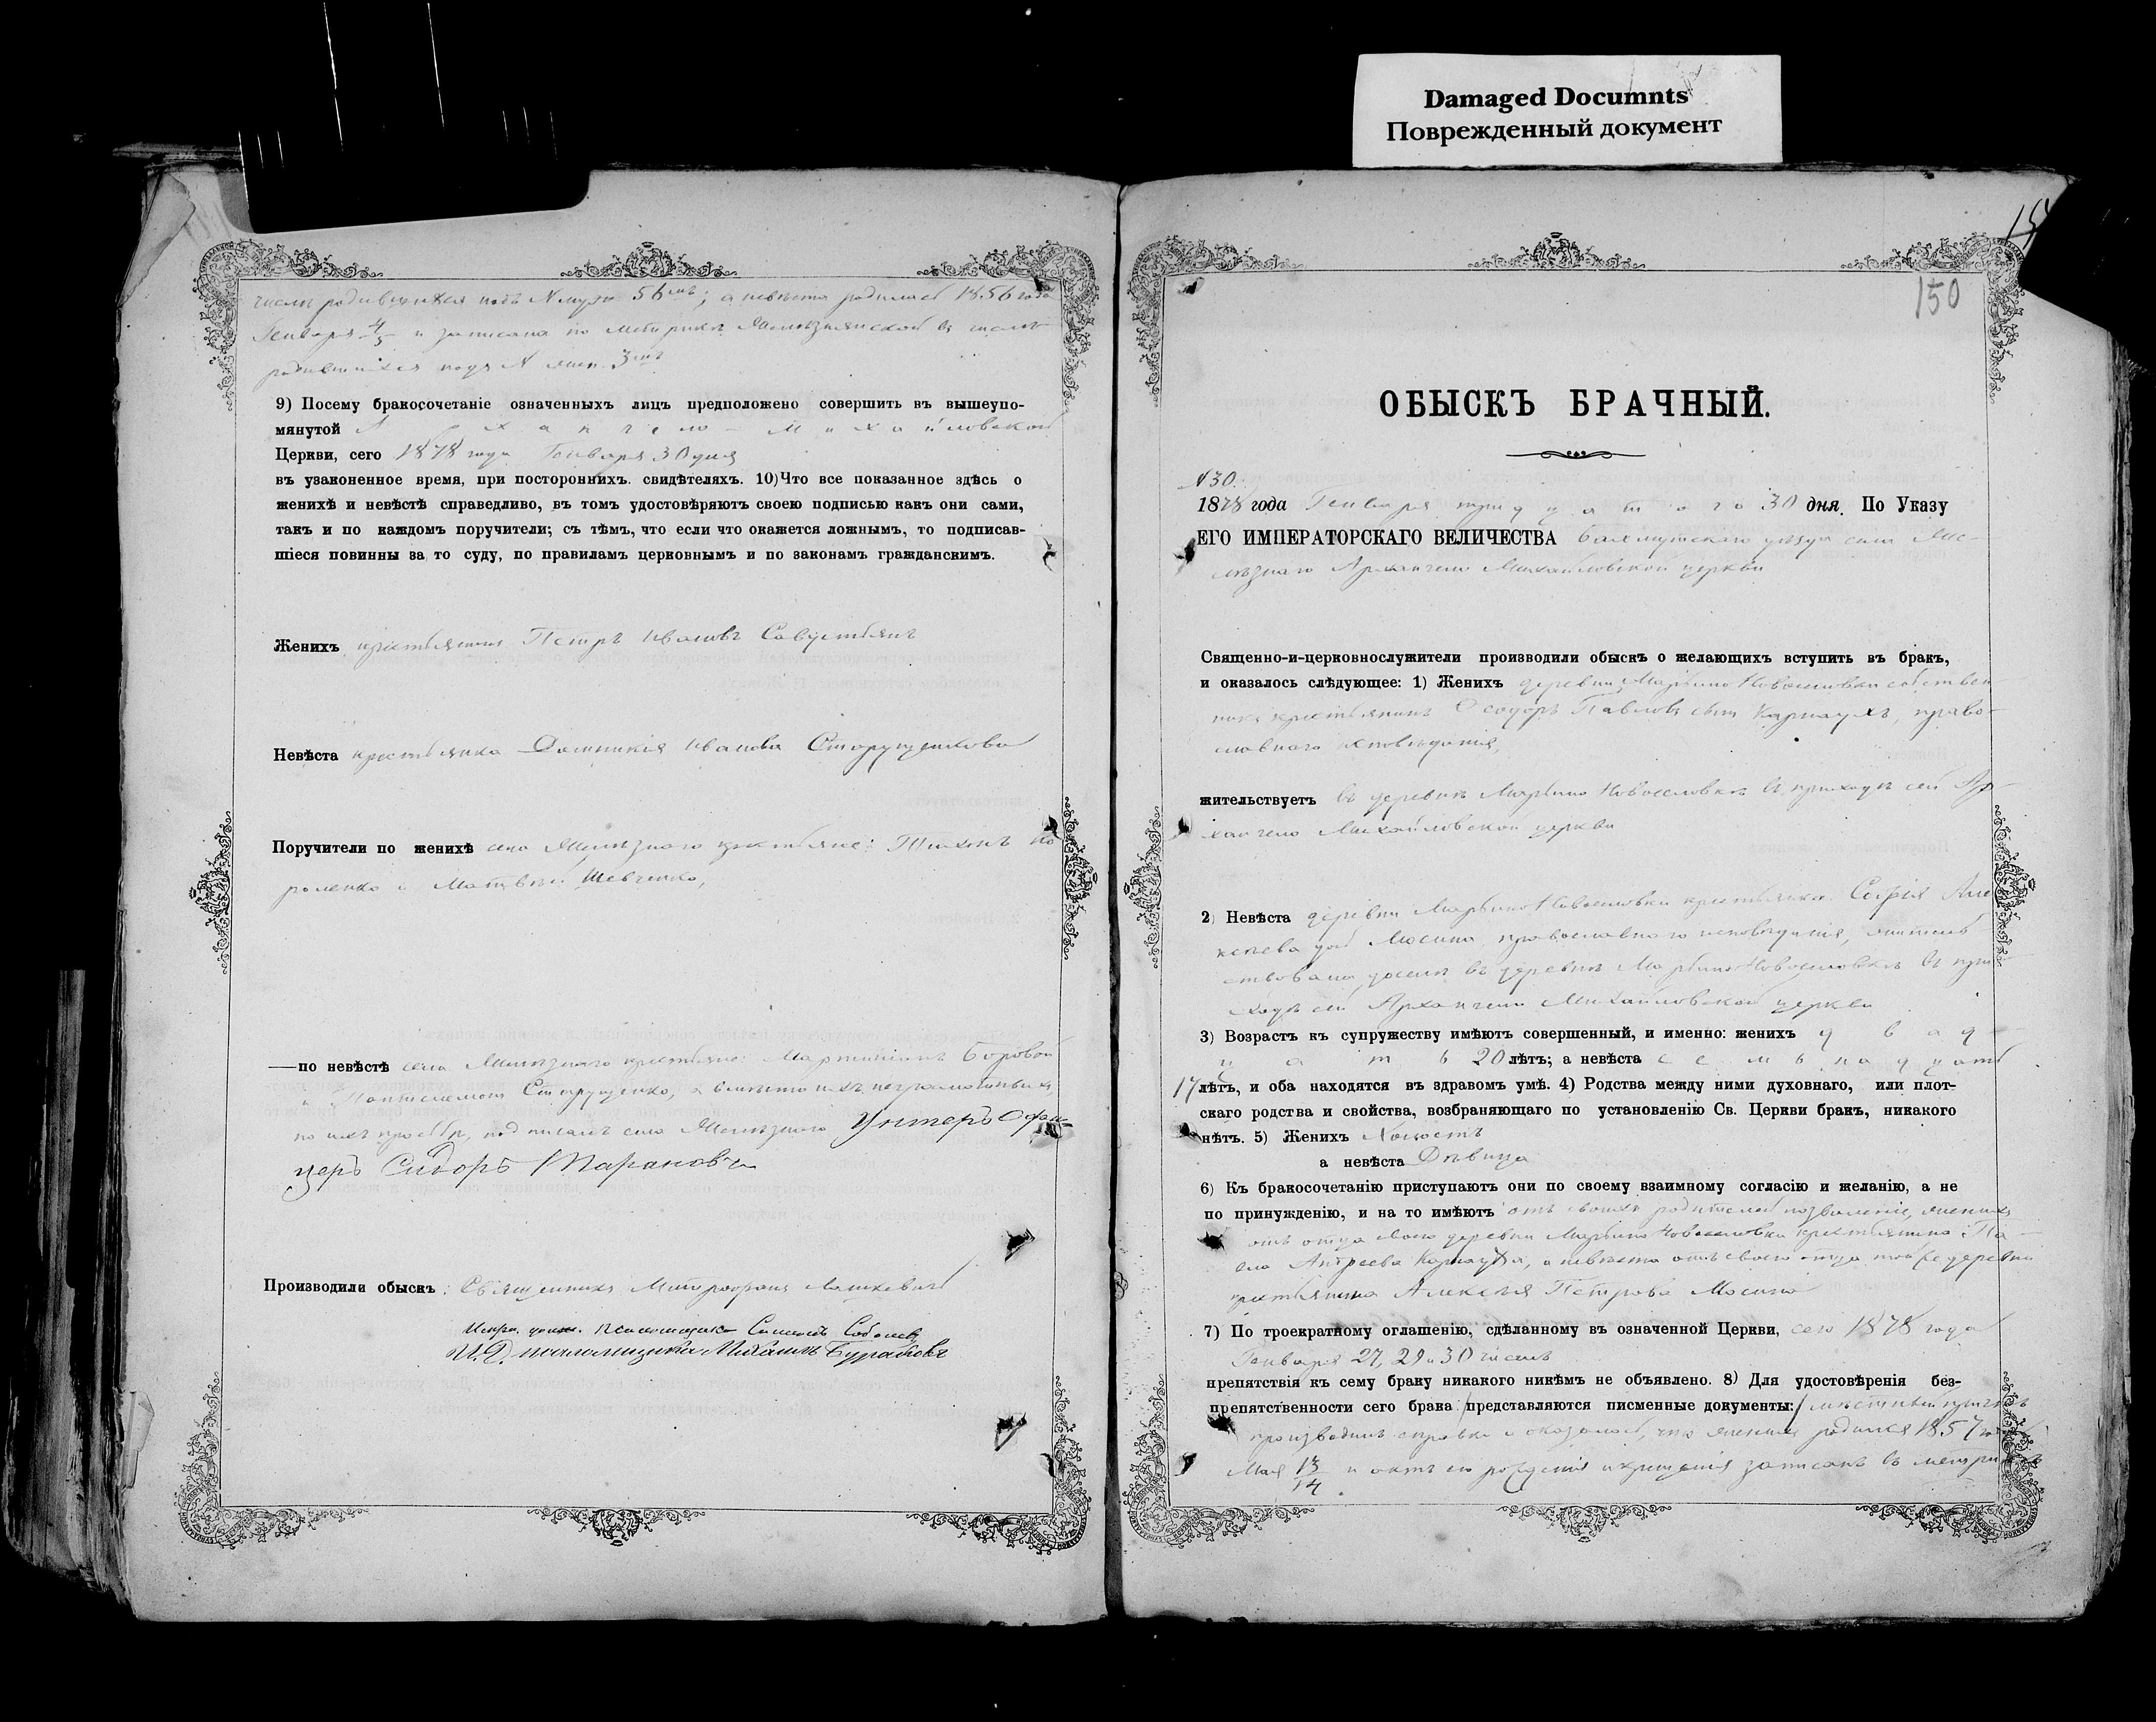 Damaged Documnts
Поврежденный документ
родившихся подъ № муж. 56мъ; а невѣста родилась 1856 года
Генваря 4/5 и записана по метрикѣ въ числѣ
родившихся подъ № жен. 3мъ
9) Посему бракосочетаніе означенныхъ лицъ предположено совершить въ вышеупо-
мянутой Архангело-Михайловской
Церкви, сего 1878 года Генваря 30 дня
въ узаконенное время, при постороннихъ. свидѣтеляхъ. 10) Что все показанное здѣсь о
женихѣ и невѣстѣ справедливо, въ томъ удостовѣряютъ своею подписью какъ они сами,
такъ и по каждомъ поручители; съ тѣмъ, что если что окажется ложнымъ, то подписав-
шіеся повинны за то суду, по правиламъ церковнымъ и по законамъ гражданскимъ.
Женихъ крестьянинъ Петръ Ивановъ
Невѣста крестьянка Домникія Иванова Старущенкова
Поручители по женихѣ села крестьяне: Тихонъ Ко
роленко и Матвѣй Шевченко,
—по невѣстѣ села крестьяне: Мартиніанъ Боровой
и Старущенко, а вмѣсто ихъ неграмотныхъ,
по ихъ просьбѣ, подписалъ села Унтеръ Офи-
церъ Сидоръ
Производили обыскъ: Священникъ Митрофанъ
псаломщика Симеонъ
И. Д. псаломщика Михаилъ
150
ОБЫСКЪ БРАЧНЫЙ.
№30.
1878 года Генваря тридцатаго 30 дня. По Указу
ЕГО ИМПЕРАТОРСКАГО ВЕЛИЧЕСТВА Бахмутскаго уѣзда села Же-
лѣзнаго Архангело Михайловской церкви
Священно-и-церковнослужители производили обыскъ о желающихъ вступить въ бракъ,
и оказалось слѣдующее: 1) Женихъ деревни Марьино Новоселовки собствен
никъ крестьянинъ Ѳеодоръ Павловъ сынъ Карнаухъ, право-
славнаго исповѣданія,
жительствуетъ въ деревнѣ Марьино Новоселовкѣ въ приходѣ сей Ар-
хангело Михайловской церкви
2) Невѣста деревни Марьино Новоселовки крестьянка Софія Але
ксѣева дочь Мосина, православнаго исповѣданія, житель
ствовала доселѣ въ деревнѣ Марьино Новоселовкѣ въ при-
ходѣ сей Архангело Михайловской церкви
3) Возрастъ къ супружеству имѣютъ совершенный, и именно: женихъ двад-
цать 20 лѣтъ; а невѣста семьнадцать
17 лѣтъ, и оба находятся въ здравомъ умѣ. 4) Родства между ними духовнаго, или плот-
скаго родства и свойства, возбраняющаго по установленію Св. Церкви бракъ, никакого
нѣтъ. 5) Женихъ Холостъ
а невѣста Дѣвица
6) Къ бракосочетанію приступаютъ они по своему взаимному согласію и желанію, а не
по принужденію, и на то имѣютъ отъ своихъ родителей позволеніе, женихъ
отъ отца своего деревни Марьино Новоселовки крестьянина Па-
вла Андреева Карнауха, а невѣста отъ своего отца той же деревни
крестьянина Алексѣя Петрова Мосина
7) По троекратному оглашенію, сдѣланному въ означенной Церкви, сего 1878 года
Генваря 27, 29 и 30 чиселъ
препятствія къ сему браку никакого никѣмъ не объявлено. 8) Для удостовѣренія без-
препятственности сего брака представляются писменные документы: мѣстный причтъ
производилъ справки и оказалось, что женихъ родился 1857 года
Мая 13/14 и актъ его рожденія и крещенія записанъ въ метрикѣ